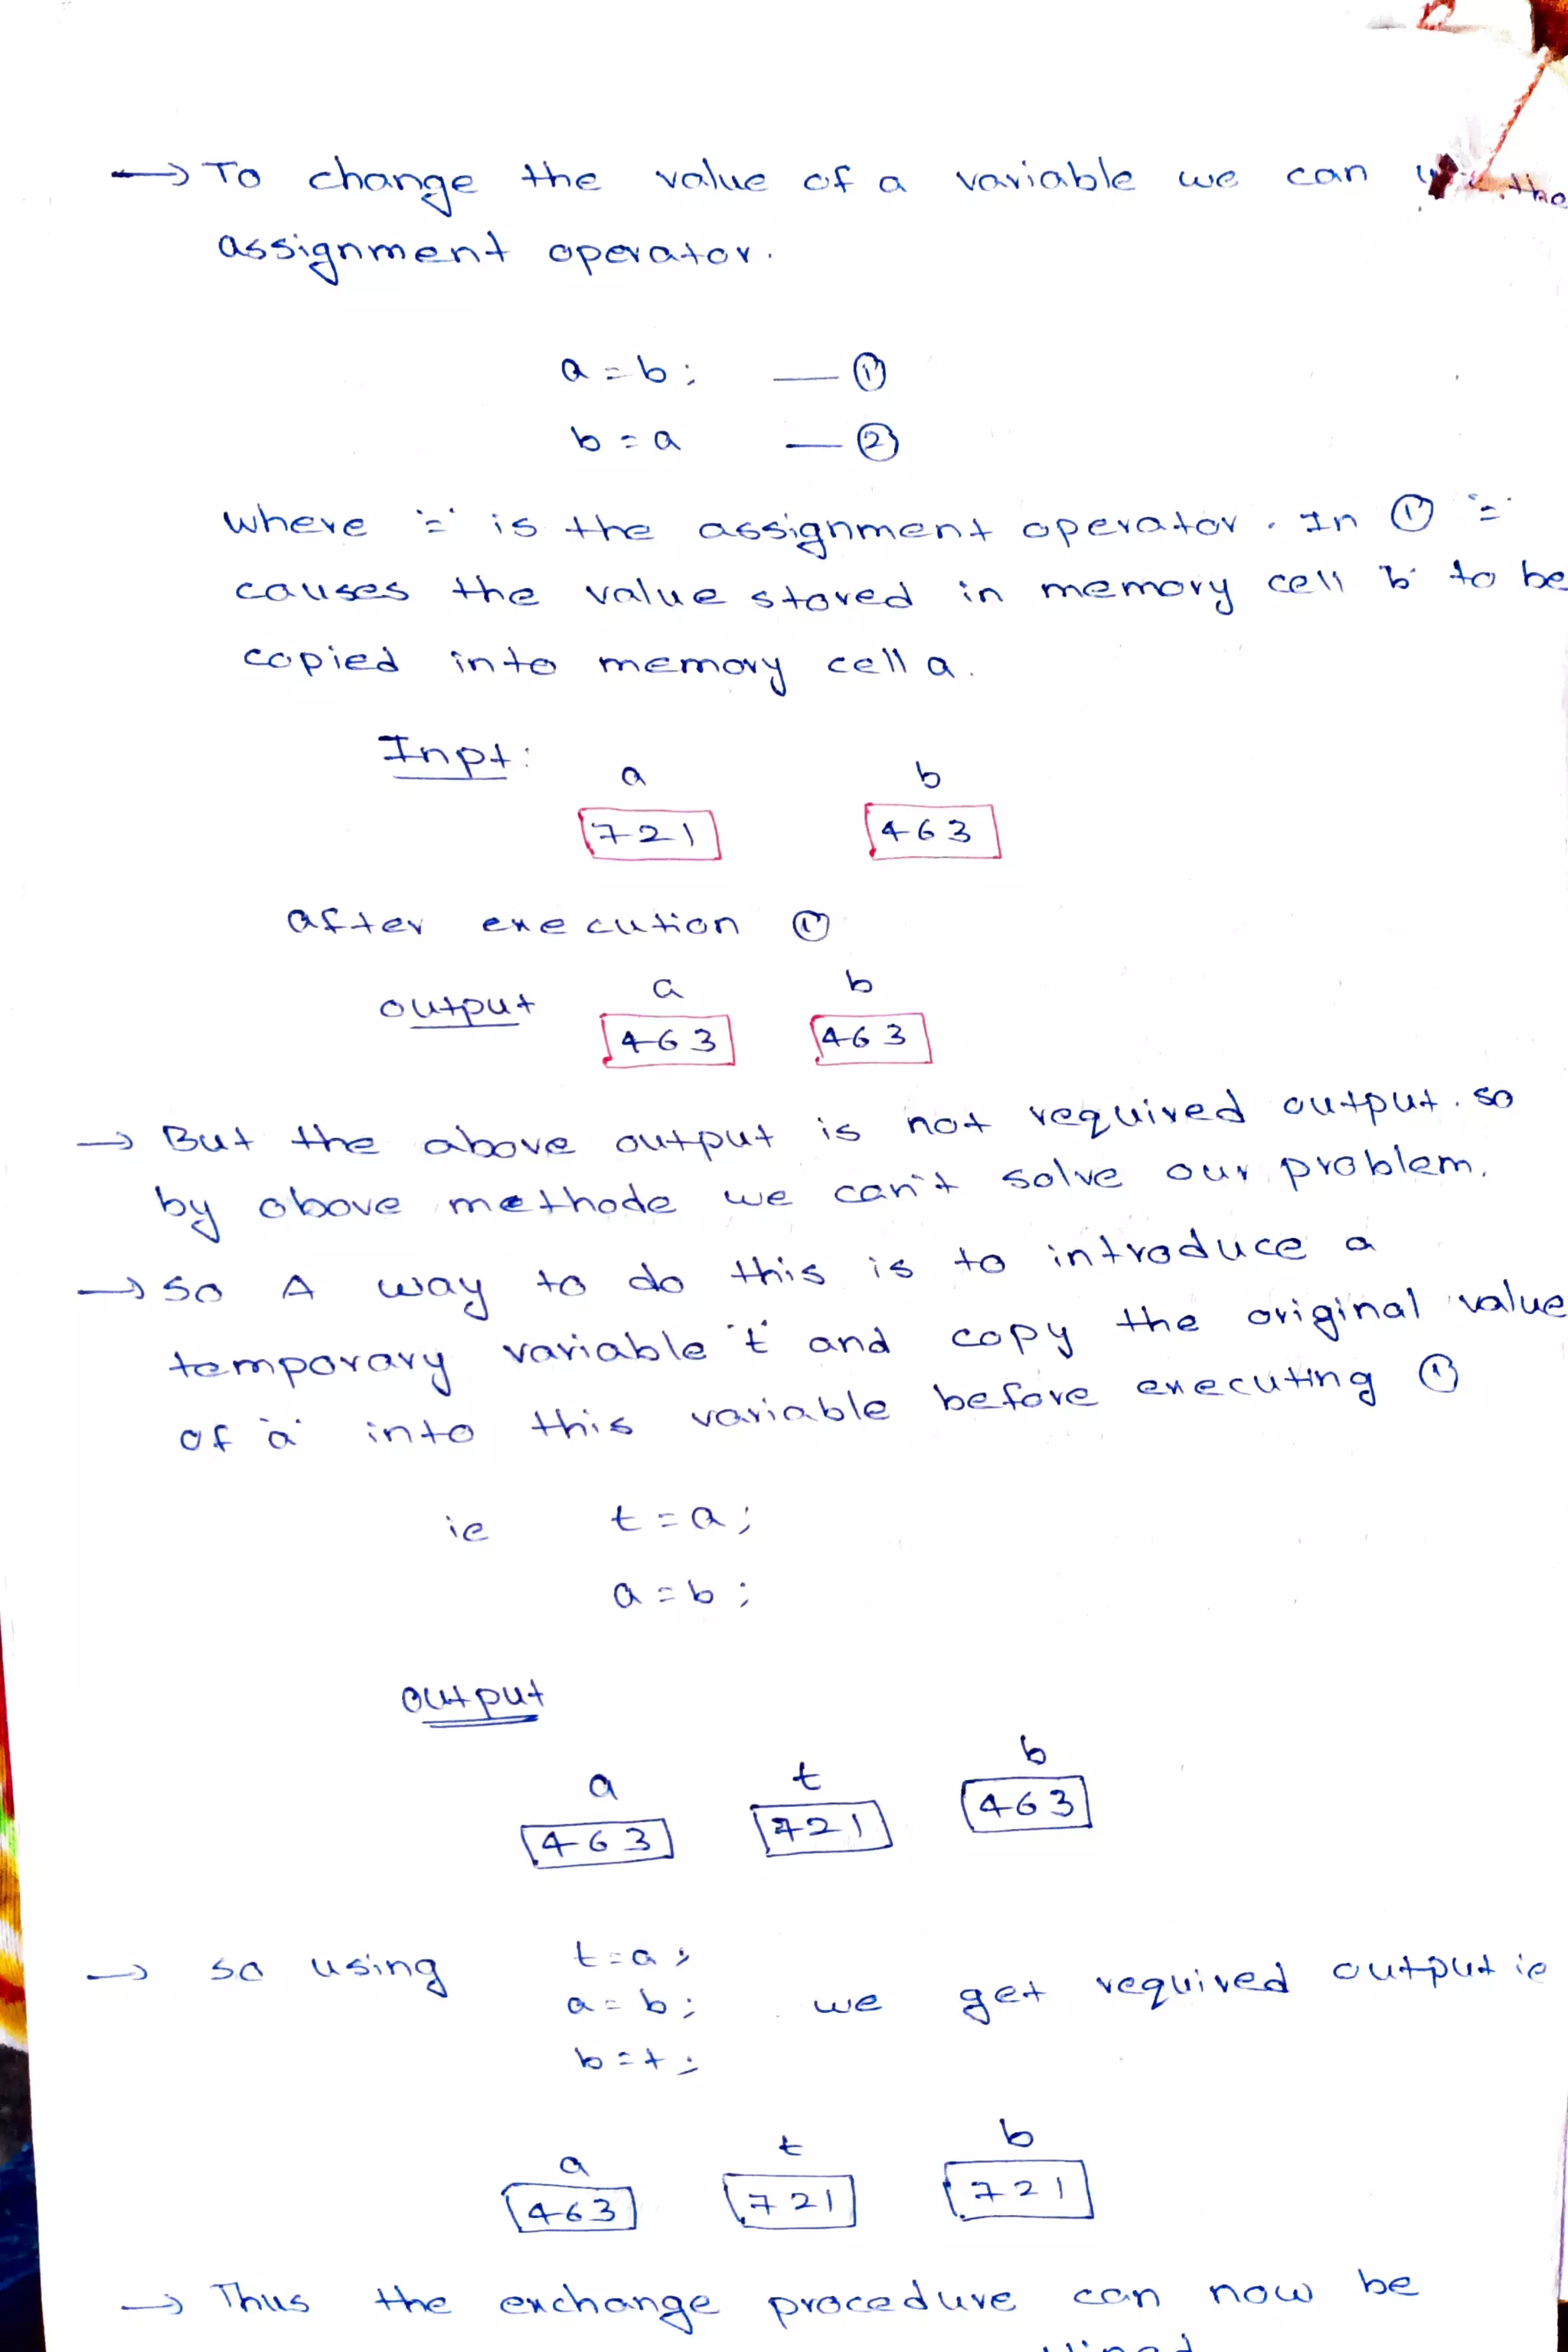 → To change the value of a variable we can the
assignment operator.
a = b; — ①
b = a — ②
where '=' is the assignment operator. In ① '='
causes the value stored in memory cell 'b' to be
copied into memory cell a.
Inpt:
a b
721 463
after execution ①
output a b
463 463
→ But the above output is not required output. so
by above methode we can't solve our problem.
→ so A way to do this is to introduce a
temporary variable 't' and copy the original value
of 'a' into this variable before executing ①
ie t = a;
a = b;
output
a t b
463 721 463
→ so using t = a; a = b; b = t; we get required output ie
a t b
463 721 721
→ Thus the exchange procedure can now be